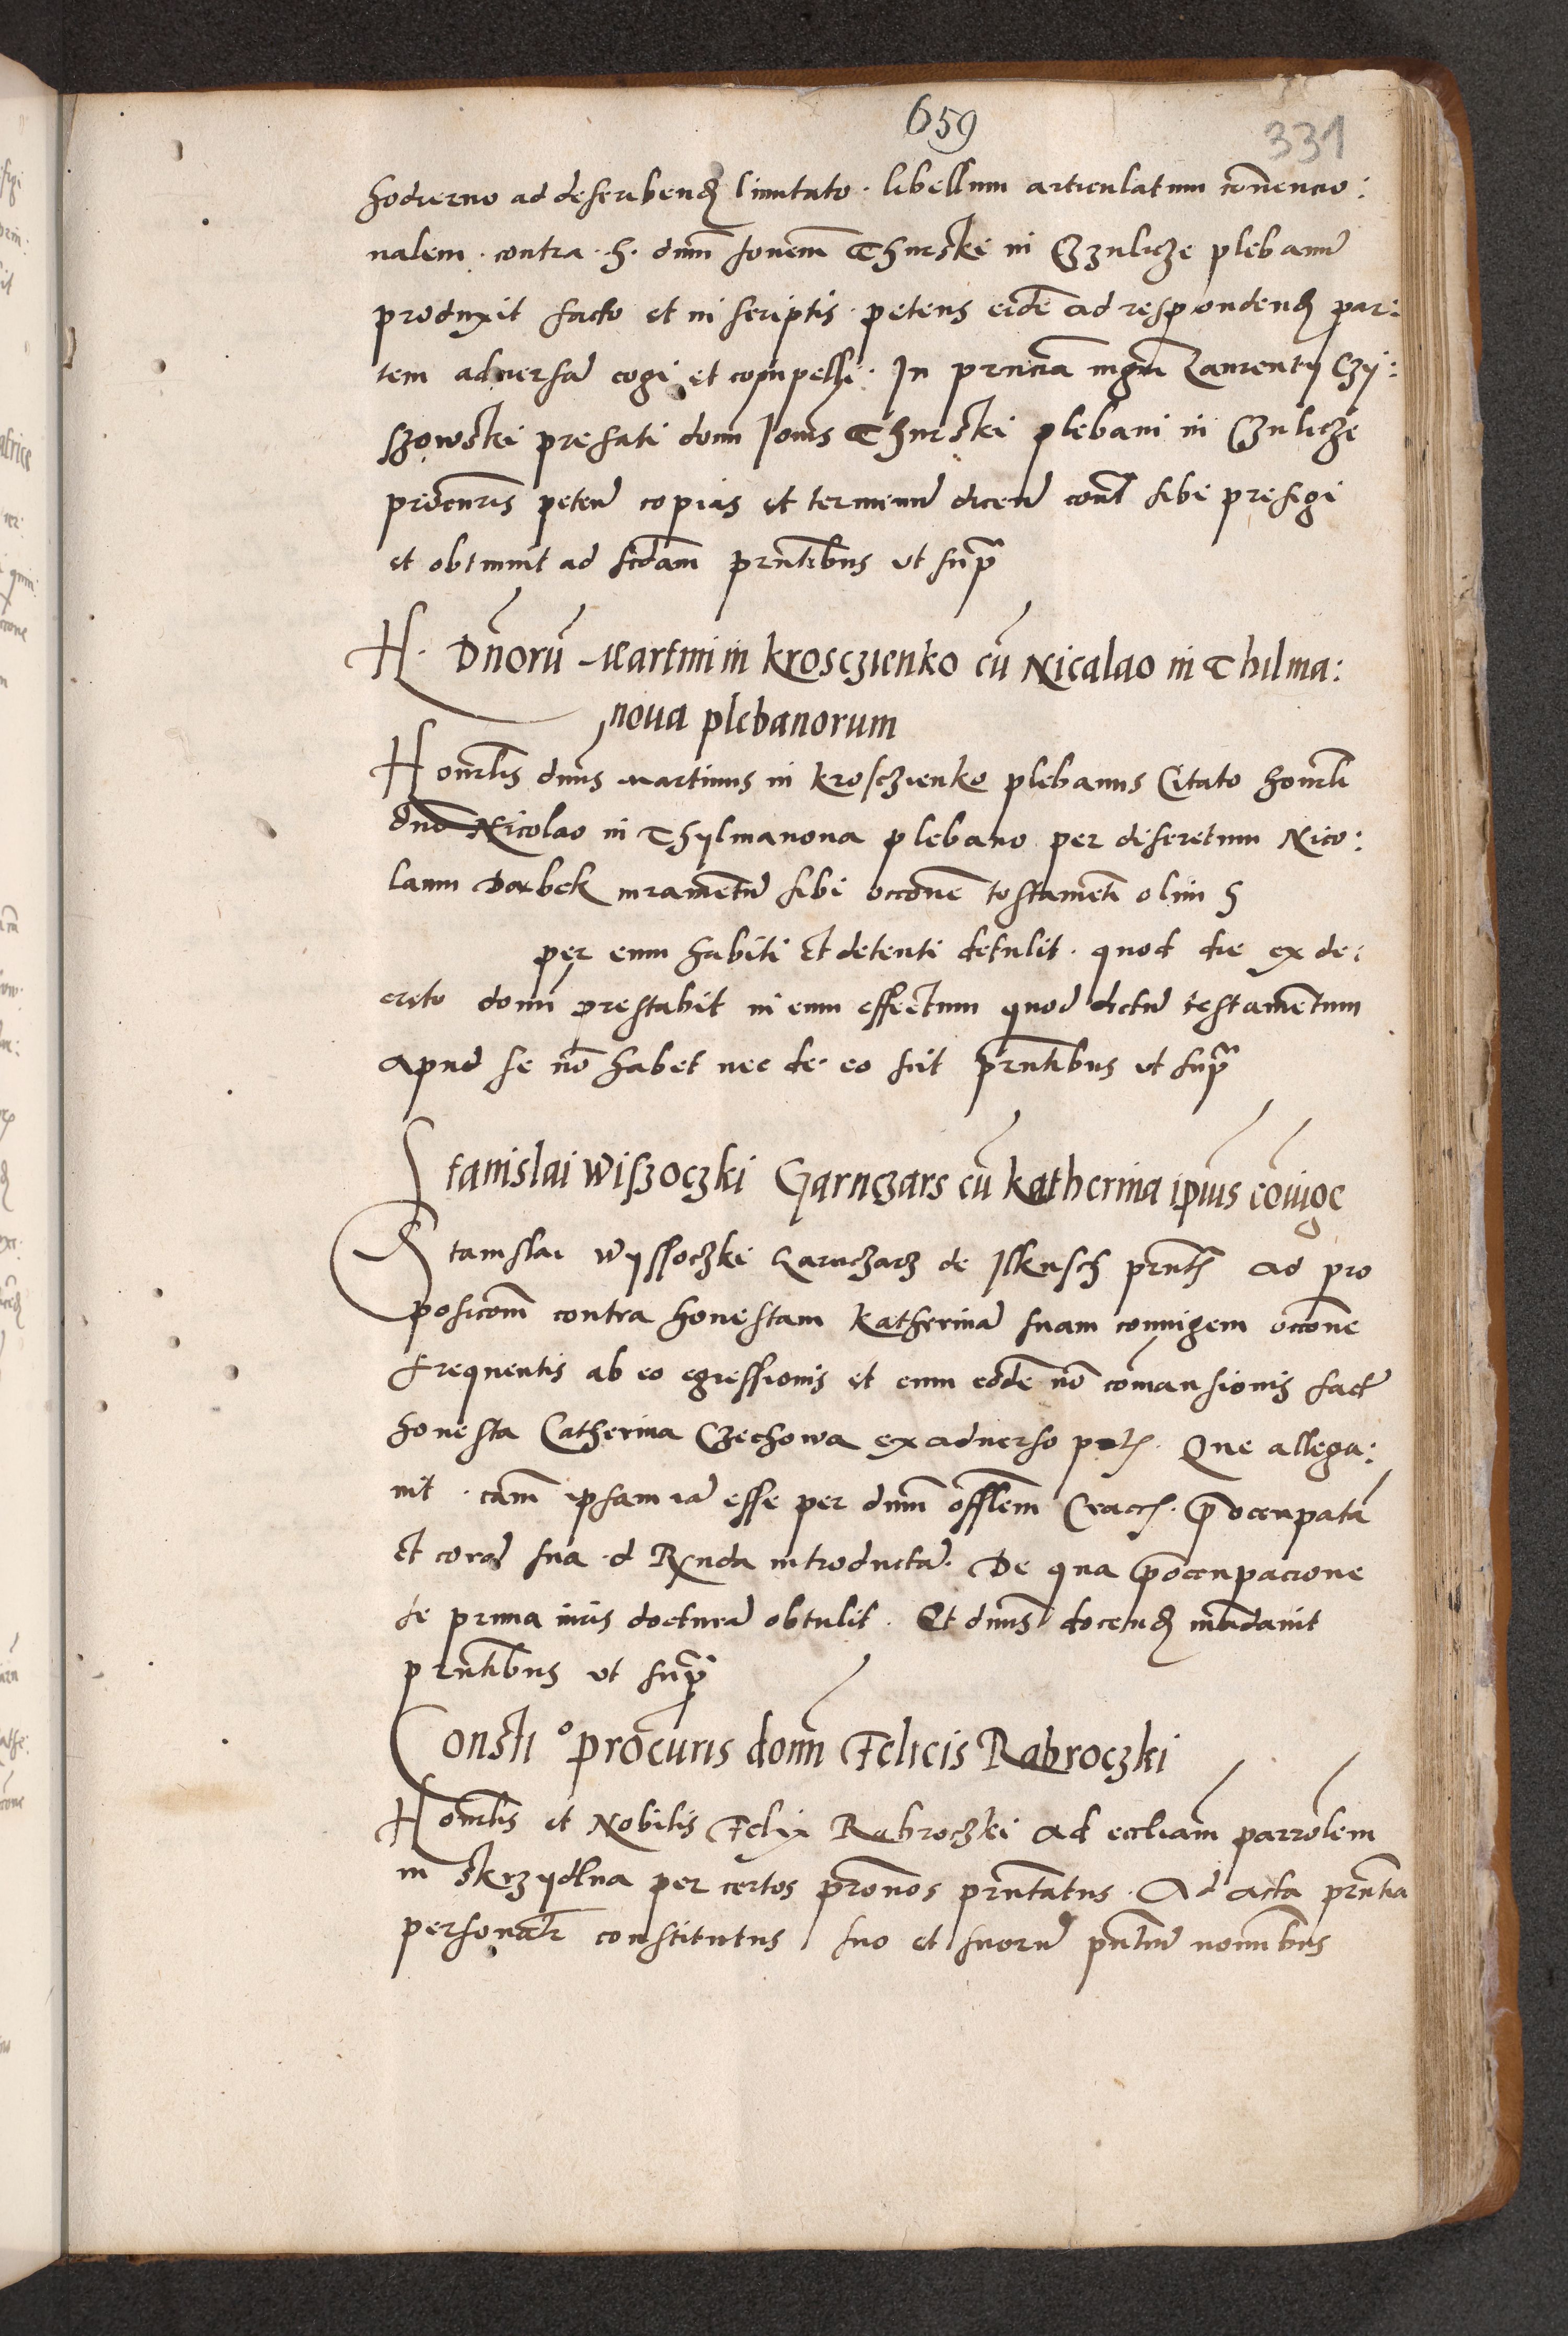 659
331
hodierno ad describend limitato · libellum articulatum convencio:
nalem · contra · h · dnm Jonem Thurski in Czulicze plebanu
produxit facto et in scriptis · petens eide ad respondend par:
tem adversa cogi et compelli · In prncia mgri Laurentij Czi:
szowski prefati domi Jonis Thurski plebani in Czulicze
procuris peten copias et terminu dicen cont sibi prefigi
et obtinuit ad scdam prntibus ut supra
H · Dnoru Martini in Krosczienko cu Nicalao in Thilma:
nova plebanorum
Honrlis dnus Martinus in Krosczienko plebanus Citato honrli
dno Nicolao in Thylmanova plebano per discretum Nico:
laum Dorbek iuramentu sibi occone testamenti olim h
per eum habiti et detenti detulit · quod die ex de:
creto domi prestabit in eum effectum quod dictu testamentum
apud se no habet nec de eo scit prntibus ut supra
Stanislai Wiszoczki Garnczars cu Katherina ipius coiuge
Stanislai Wyssoczki Garnczarz de Ilkusch prntis ad pro
posicom contra honestam Katherina suam coniugem occone
frequentis ab eo egressionis et cum eode no comansionis fact
honesta Catherina Czechowa ex adverso p Que allega:
vit · cam ipsam ia esse per dnm offlem Cracc · preoccupata
et cora sua · d Rnda introducta · De qua preoccupacione
se prima iuris doctura obtulit · Et dnus docend mandavit
prntibus ut supra
Consti° procuris domi Felicis Rabroczki
Honrlis et Nobilis Felix Rabroczki ad eccliam parrolem
in Skrzydlna per certos pronos prntatus · Ad acta prntia
personalr constitutus suo et suoru prntiu nominibus